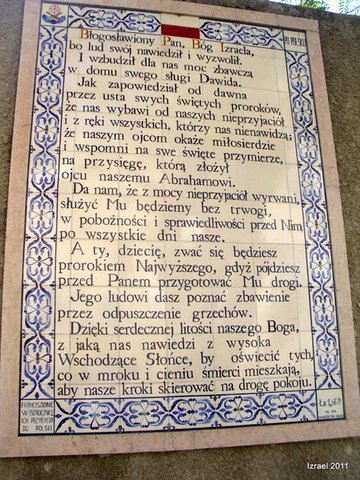 PO POLSKU
Błogosławiony Pan, Bóg Izraela,
bo lud swój nawiedził i wyzwolił.
I wzbudził dla nas moc zbawczą
w domu swego sługi Dawida.
Jak zapowiedział od dawna
przez usta swych świętych proroków,
że nas wybawi od naszych nieprzyjaciół
i z ręki wszystkich, którzy nas nienawidzą;
że naszym ojcom okaże miłosierdzie
i wspomni na swe święte przymierze,
na przysięgę, którą złożył
ojcu naszemu Abrahamowi.
Da nam, że z mocy nieprzyjaciół wyrwani,
służyć Mu będziemy bez trwogi,
w pobożności i sprawiedliwości przed Nim
po wszystkie dni nasze.
A ty, dziecię, zwać się będziesz
prorokiem Najwyższego, gdyż pójdziesz
przed Panem przygotować Mu drogi.
Jego ludowi dasz poznać zbawienie
przez odpuszczenie grzechów.
Dzięki serdecznej litości naszego Boga,
z jaką nas nawiedzi z wysoka
Wschodzące Słońce, by oświecić tych,
co w mroku i cieniu śmierci mieszkają,
aby nasze kroki skierować na drogę pokoju.
FRANCISZKANIE
ICH PRZYBYCIA
DO POLSKI
Łk 1,68-79
Izrael 2011